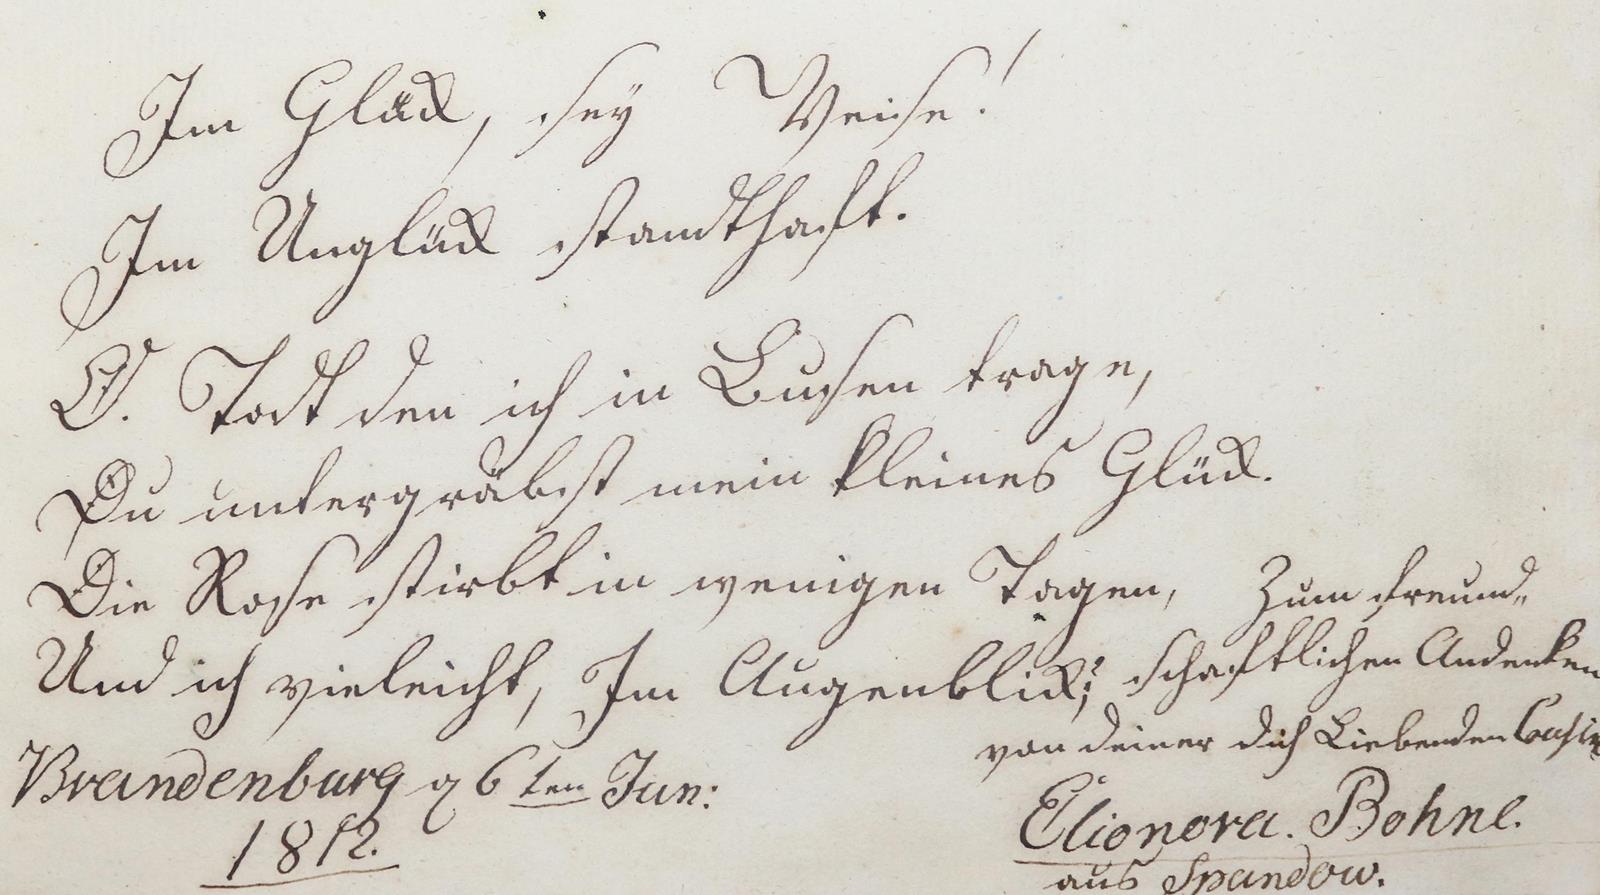 Im Glück, sey Weise!
Im Unglück standthaft.
O. Todt den ich in Busen trage,
Du untergräbst mein kleines Glück.
Die Rose stirbt in wenigen Tagen,
Und ich vieleicht, Im Augenblick;
Zum freund„
schaftlichen Andenken
von deiner dich Liebenden Cousine
Elionora. Bohne.
aus Spandow.
Brandenburg 6ten Jun:
1812.